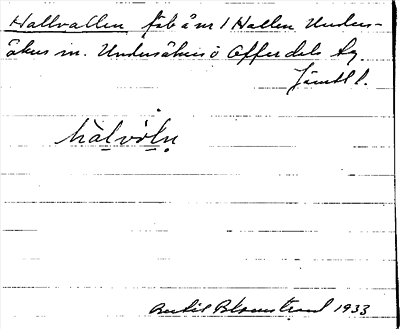 Hallvallen fäb å nr 1 Hallen Unders-
åkers sn. Undersåkers o Offerdals tg
Jämtl l.
hàlvòl̥n̥
Bertil Blomstrand 1933